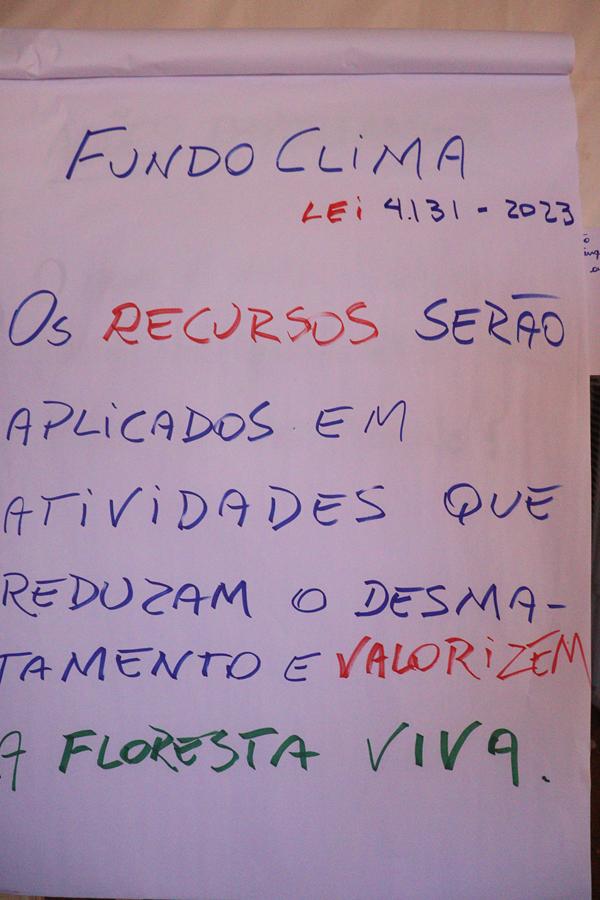 FUNDO CLIMA
LEI 4.131 - 2023
Os RECURSOS SERÃO
APLICADOS EM
ATIVIDADES QUE
REDUZAM O DESMA-
TAMENTO E VALORIZEM
A FLORESTA VIVA.